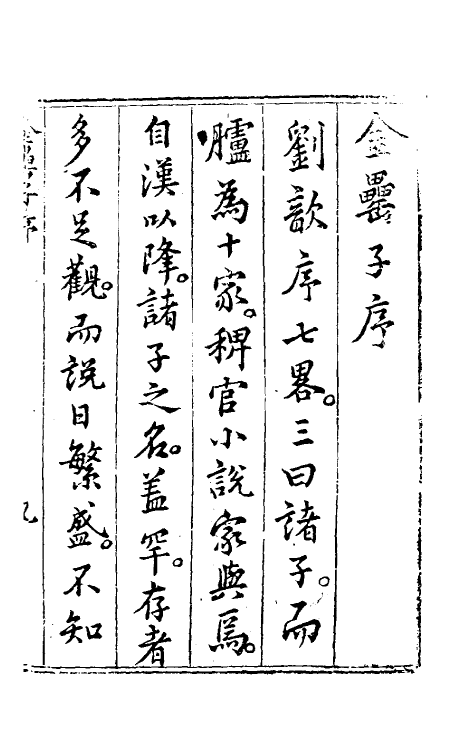 金罍子序
劉歆序七畧。三曰諸子。而
臚為十家。稗官小說家與焉。
自漢以降。諸子之名。葢罕。存者
多不足觀。而説日繁盛。不知
金罍子序